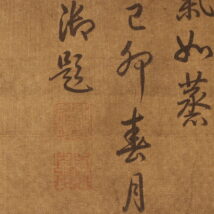 氣如蒸
己卯春月
御題